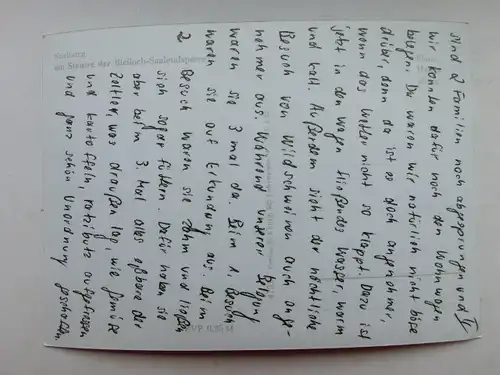 sind 2 Familien noch abgesprungen und IV
wir konnten dafür noch den Wohnwagen
belegen. Da waren wir natürlich nicht böse
drüber, denn da ist es doch angenehmer,
wenn das Wetter nicht so klappt. Dazu ist
jetzt in den Wagen fließendes Wasser, warm
und kalt. Außerdem sieht der nächtliche
Besuch von Wildschweinen auch ange-
nehmer aus. Während unserer Belegung
waren sie 3 mal da. Beim 1. Besuch
waren sie auf Erkundung aus. Beim
2. Besuch waren sie zahm und ließen
sich sogar füttern. Dafür haben sie
aber beim 3. Mal alles eßbare der
Zeltler, was draußen lag, wie Gemüse
und Kartoffeln, ratzibutz aufgefressen
und ganz schön Unordnung geschaffen.